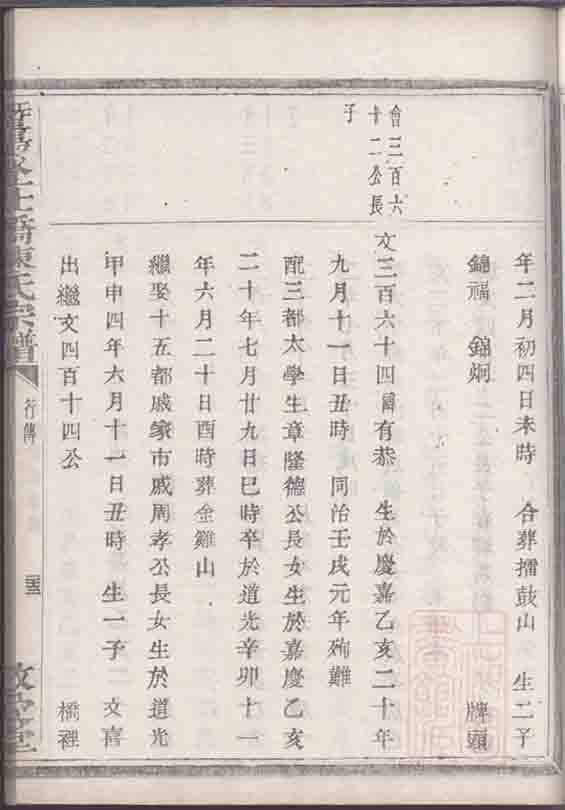 年二月初四日未時　合葬擂鼓山　生二子
錦福　錦炯　牌頭
會三百六
十二公長
子
文三百六十四諱有恭　生於慶嘉乙亥二十年
九月十一日丑時　同治壬戌元年殉難
配三都太學生章隆德公長女生於嘉慶乙亥
二十年七月廿九日巳時卒於道光辛卯十一
年六月二十日酉時葬金雞山
繼娶十五都戚家市戚周孝公長女生於道光
甲申四年六月十一日丑時　生一子　文喜
出繼文四百十四公　橋裡
橋陳氏宗譜
行傳